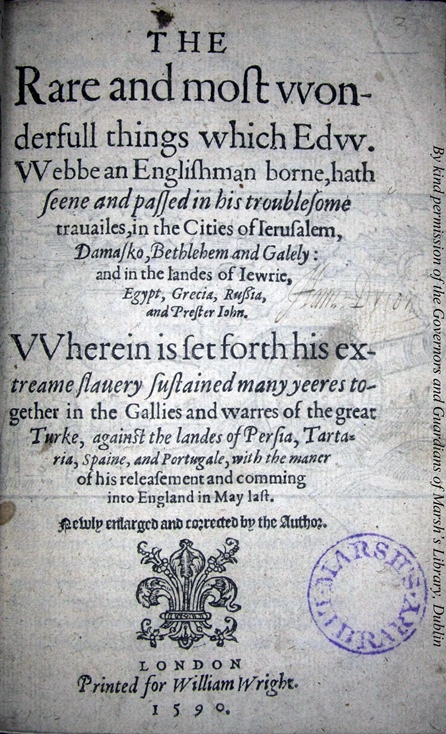 THE
Rare and most vvon-
derfull things which Edvv.
VVebbe an Englishman borne, hath
seene and passed in his troublesome
trauailes, in the Cities of Ierusalem,
Damasko, Bethlehem and Galely:
and in the landes of Iewrie,
Egypt, Grecia, Russia,
and Prester Iohn.
VVherein is set forth his ex-
treame slauery sustained many yeeres to-
gether in the Gallies and warres of the great
Turke, against the landes of Persia, Tarta-
ria, Spaine, and Portugale, with the maner
of his releasement and comming
into England in May last.
Newly enlarged and corrected by the Author.
MARSH'S LIBRARY
LONDON
Printed for William Wright.
1590.
By kind permission of the Governors and Guardians of Marsh's Library, Dublin